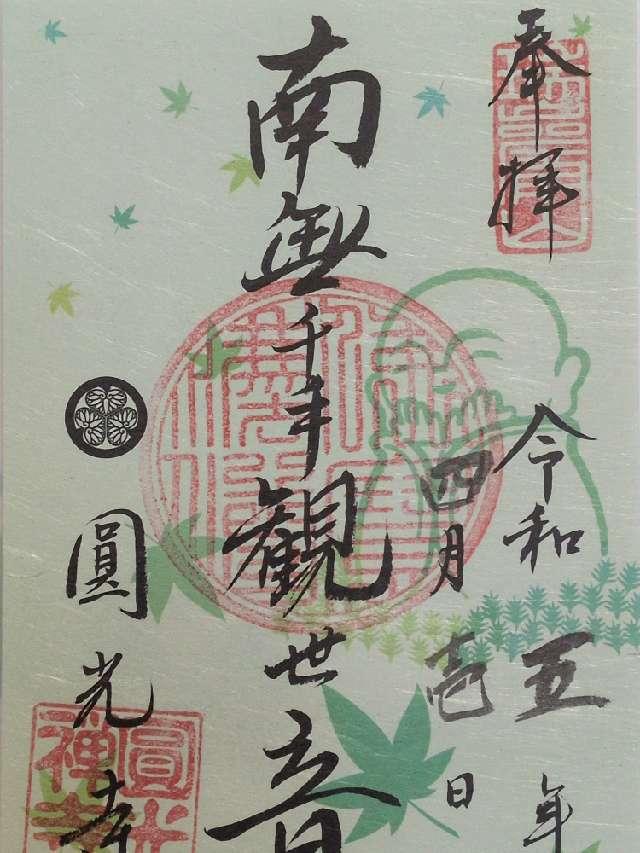 奉拝
令和五年
四月壱日
南無千手観世音
圓光寺
圓光
禅寺